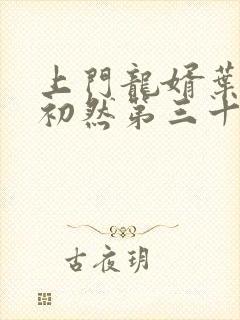 上門龍婿葉
初然第三十
古夜玥